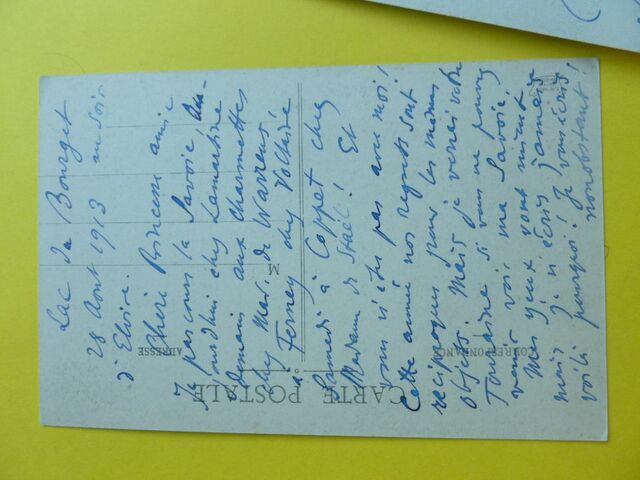 Lac du Bourget
28 Août 1913 un soir
d'
Chère Princesse amie
Je parcours la Savoie. Au-
jourd'hui chez Lamartine
demain aux Charmettes
chez Mme de Warrens,
à Ferney chez Voltaire
samedi à Coppet chez
Madame de Staël! Et
vous n'êtes pas avec moi!
Cette année nos regrets sont
réciproques pour les mêmes
objets. Mais je verrai votre
Touraine si vous ne pouvez
venir voir ma Savoie.
Mes yeux vont mieux
mais je n'écris jamais
voilà pourquoi! Je vous écris
nonobstant!
M
ADRESSE
CORRESPONDANCE
CARTE POSTALE